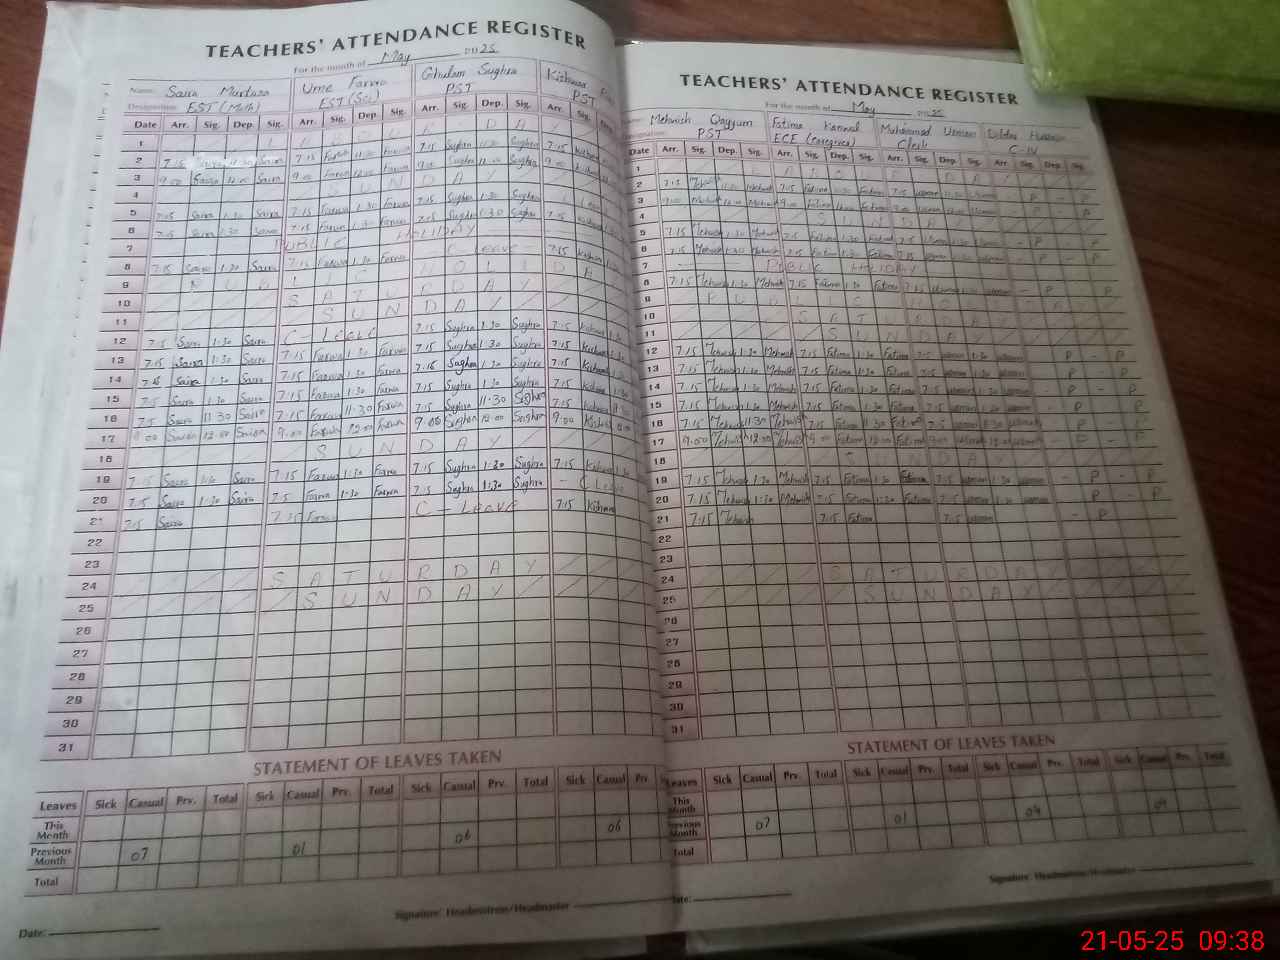 TEACHERS' ATTENDANCE REGISTER
For the month of May 2025
Name: Saira Murtaza Ume Farwa Ghulam Sughra Kishwar
Designation: EST (Math) EST (Sci) PST PST
Date Arr. Sig. Dep. Sig. Arr. Sig. Dep. Sig. Arr. Sig. Dep. Sig. Arr. Sig.
1 L A B O U R D A Y
2 7:15 Saira 11:30 Saira 7:15 Farwa 11:30 Farwa 7:15 Sughra 11:30 Sughra 7:15
3 9:00 Saira 12:00 Saira 9:00 Farwa 12:00 Farwa 9:00 Sughra 12:00 Sughra 9:00
4 S U N D A Y
5 7:15 Saira 1:30 Saira 7:15 Farwa 1:30 Farwa 7:15 Sughra 1:30 Sughra C Leave
6 7:15 Saira 1:30 Saira 7:15 Farwa 1:30 Farwa 7:15 Sughra 1:30 Sughra 7:15
7 PUBLIC HOLIDAY
8 7:15 Saira 1:30 Saira 7:15 Farwa 1:30 Farwa C - Leave 7:15
9 P U B L I C H O L I D A Y
10 S A T U R D A Y
11 S U N D A Y
12 7:15 Saira 1:30 Saira C - Leave 7:15 Sughra 1:30 Sughra 7:15
13 7:15 Saira 1:30 Saira 7:15 Farwa 1:30 Farwa 7:15 Sughra 1:30 Sughra 7:15
14 7:15 Saira 1:30 Saira 7:15 Farwa 1:30 Farwa 7:15 Sughra 1:30 Sughra 7:15
15 7:15 Saira 1:30 Saira 7:15 Farwa 1:30 Farwa 7:15 Sughra 1:30 Sughra 7:15
16 7:15 Saira 11:30 Saira 7:15 Farwa 11:30 Farwa 7:15 Sughra 11:30 Sughra 7:15
17 9:00 Saira 12:00 Saira 9:00 Farwa 12:00 Farwa 9:00 Sughra 12:00 Sughra 9:00
18 S U N D A Y
19 7:15 Saira 1:30 Saira 7:15 Farwa 1:30 Farwa 7:15 Sughra 1:30 Sughra 7:15
20 7:15 Saira 1:30 Saira 7:15 Farwa 1:30 Farwa 7:15 Sughra 1:30 Sughra - C Leave
21 7:15 Saira 7:15 Farwa C - Leave 7:15
22
23
24 S A T U R D A Y
25 S U N D A Y
26
27
28
29
30
31
STATEMENT OF LEAVES TAKEN
Leaves Sick Casual Prv. Total Sick Casual Prv. Total Sick Casual Prv. Total Sick Casual Prv.
This Month
Previous Month 07 01 06 06
Total
Signature: Headmistress/Headmaster
Date:
TEACHERS' ATTENDANCE REGISTER
For the month of May 2025
Mehwish Qayyum Fatima Kanwal Muhammad Usman Dildar Hussain
Designation: PST ECE (Caregiver) Clerk C-IV
Date Arr. Sig. Dep. Sig. Arr. Sig. Dep. Sig. Arr. Sig. Dep. Sig. Arr. Sig. Dep. Sig.
1 L A B O U R D A Y
2 7:15 Mehwish 11:30 Mehwish 7:15 Fatima 11:30 Fatima 7:15 usman 11:30 usman - P - P
3 9:00 Mehwish 12:00 Mehwish 9:00 Fatima 12:00 Fatima 9:00 usman 12:00 usman - P - P
4 S U N D A Y
5 7:15 Mehwish 1:30 Mehwish 7:15 Fatima 1:30 Fatima 7:15 usman 1:30 usman - P - P
6 7:15 Mehwish 1:30 Mehwish 7:15 Fatima 1:30 Fatima 7:15 usman 1:30 usman - P - P
7 PUBLIC HOLIDAY
8 7:15 Mehwish 1:30 Mehwish 7:15 Fatima 1:30 Fatima 7:15 usman 1:30 usman - P - P
9 P U B L I C H O L I D A Y
10 S A T U R D A Y
11 S U N D A Y
12 7:15 Mehwish 1:30 Mehwish 7:15 Fatima 1:30 Fatima 7:15 usman 1:30 usman - P - P
13 7:15 Mehwish 1:30 Mehwish 7:15 Fatima 1:30 Fatima 7:15 usman 1:30 usman - P - P
14 7:15 Mehwish 1:30 Mehwish 7:15 Fatima 1:30 Fatima 7:15 usman 1:30 usman - P - P
15 7:15 Mehwish 1:30 Mehwish 7:15 Fatima 1:30 Fatima 7:15 usman 1:30 usman - P - P
16 7:15 Mehwish 11:30 Mehwish 7:15 Fatima 11:30 Fatima 7:15 usman 11:30 usman - P - P
17 9:00 Mehwish 12:00 Mehwish 9:00 Fatima 12:00 Fatima 9:00 usman 12:00 usman - P - P
18 S U N D A Y
19 7:15 Mehwish 1:30 Mehwish 7:15 Fatima 1:30 Fatima 7:15 usman 1:30 usman - P - P
20 7:15 Mehwish 1:30 Mehwish 7:15 Fatima 1:30 Fatima 7:15 usman 1:30 usman - P - P
21 7:15 Mehwish 7:15 Fatima 7:15 usman - P
22
23
24 S A T U R D A Y
25 S U N D A Y
26
27
28
29
30
31
STATEMENT OF LEAVES TAKEN
Leaves Sick Casual Prv. Total Sick Casual Prv. Total Sick Casual Prv. Total Sick Casual Prv. Total
This Month
Previous Month 07 01 04 04
Total
Signature: Headmistress/Headmaster
Date:
21-05-25 09:38